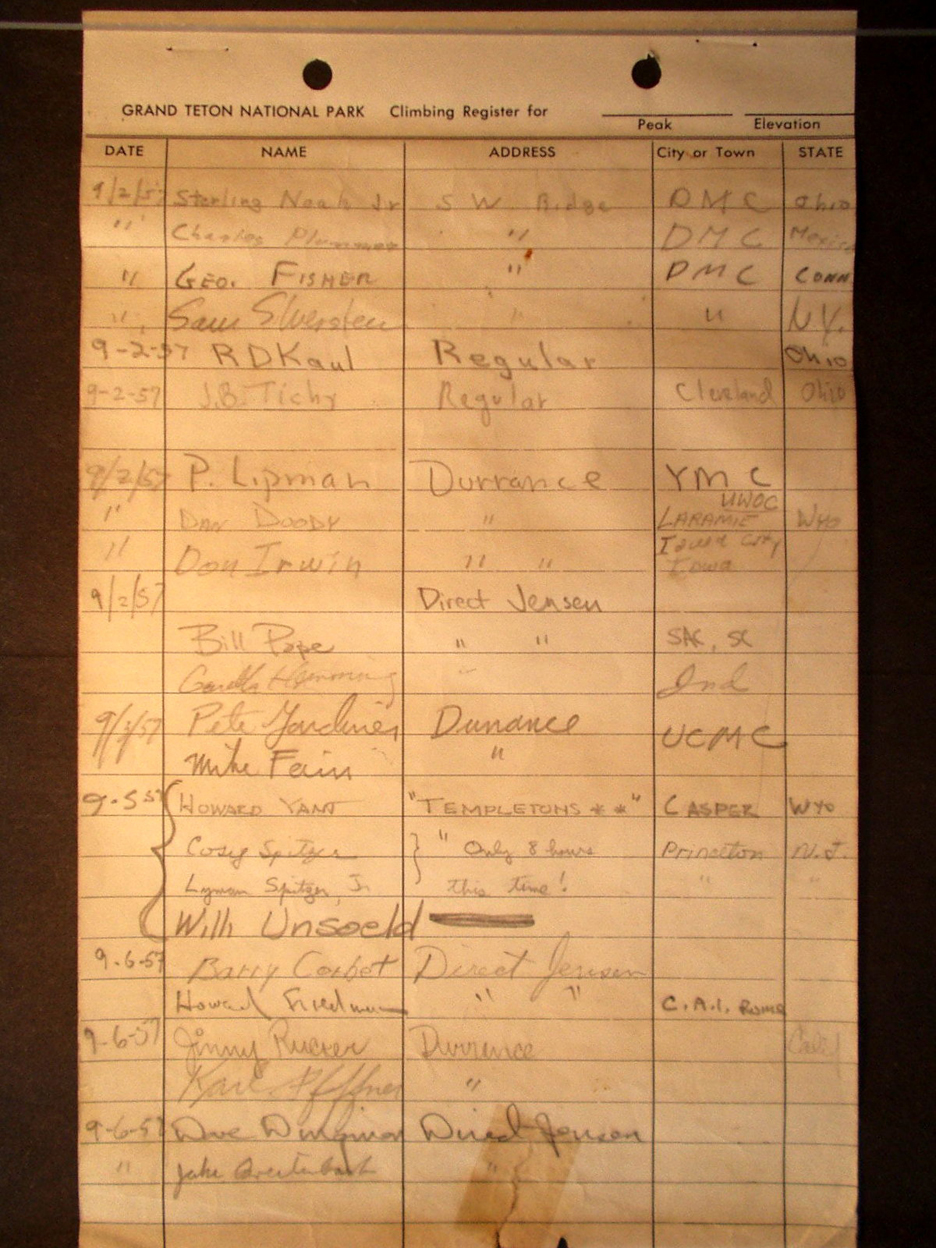 GRAND TETON NATIONAL PARK Climbing Register for
Peak Elevation
DATE NAME ADDRESS City or Town STATE
9/2/57 Sterling Neale Jr S W. Ridge DMC Ohio
" Charles Plummer " DMC Mexico
" GEO. FISHER " DMC CONN
" Sam Silverstein " " N.Y.
9-2-57 RDKaul Regular Ohio
9-2-57 J.B. Tichy Regular Cleveland Ohio
9/2/57 P. Lipman Durrance YMC
UWOC
" DAN DOODY " LARAMIE WYO
" Don Irwin " " Iowa City Iowa
9/2/57 Direct Jensen
Bill Pope " " SAC, SC
Hemming " Ind
9/3/57 Pete Gardiner Durrance UCMC
Mike Fain "
9-5 57 HOWARD VANT "TEMPLETONS **" CASPER WYO
Spitzer " Only 8 hours Princeton N.J.
Lyman Spitzer, Jr this time! " "
Willi Unsoeld
9-6-57 Barry Corbet Direct Jensen
Howard Friedman " " C.A.I. ROME
9-6-57 Jinny Rucker Durrance Calif
Karl Pfiffner "
9-6-57 Dave Dingman Direct Jensen
" Jake Breitenbach "